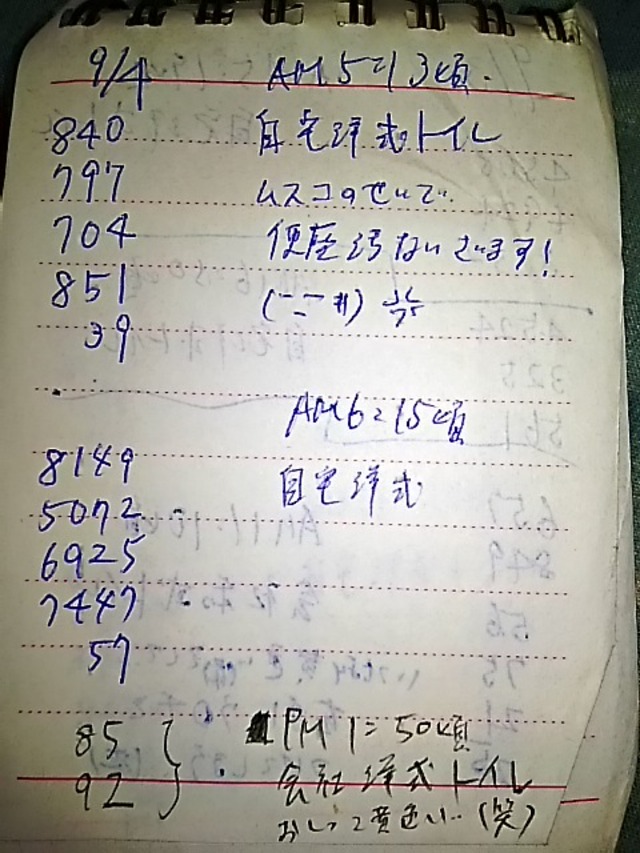 9/4 AM5=13頃.
840 自宅洋式トイレ
797 ムスコのせいで..
704 便座汚ないざます!
851 (ーー#)
39
AM6=15頃
8149 自宅洋式
5072
6925
7447
57
85 PM1=50頃
92 会社洋式トイレ
おしっこ黄色い..(笑)